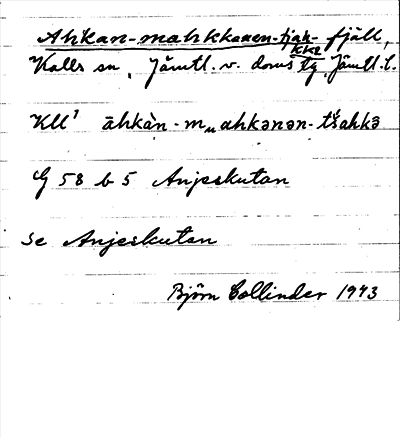 Ahkan-mahkkenen-tjah- fjäll,
kke
Kalls sn, Jämtl. v. doms tg, Jämtl. l.
KU¹ āhkàn-mahkənən-tšahkə̄
G 58 b 5 Anjeskutan
se Anjeskutan
Björn Collinder 1943